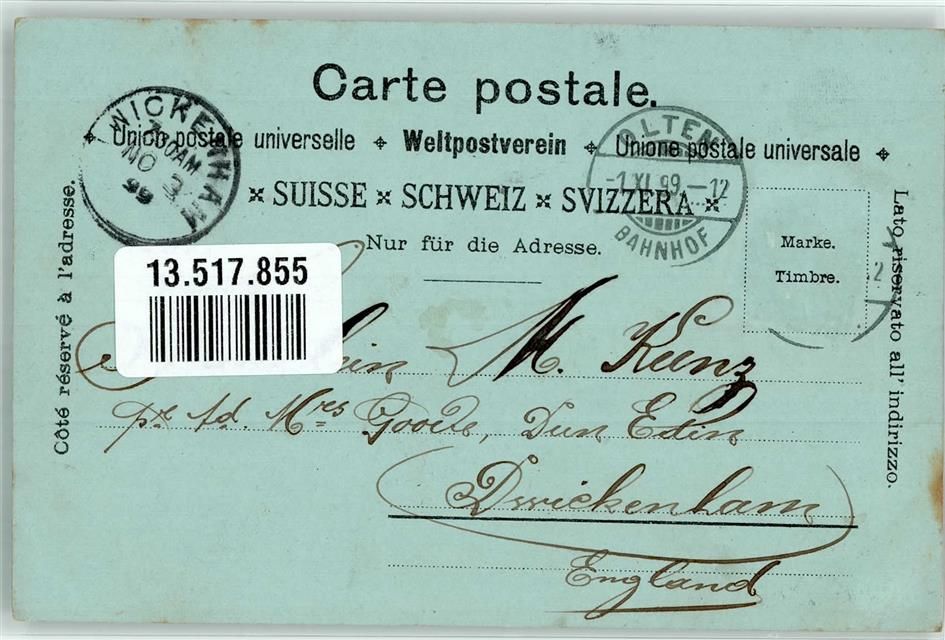 Carte postale.
Union postale universelle Weltpostverein Unione postale universale
SUISSE × SCHWEIZ × SVIZZERA
Nur für die Adresse.
TWICKENHAM
7.30AM
NO 3
99
OLTEN
-1.XI.99.-12
BAHNHOF
Marke.
Timbre.
2
Côté réservé à l'adresse.
Lato riservato all' indirizzo.
13.517.855
M. Kunz
pr. Ad. Mrs Goode, Dun Edin
Twickenham
England